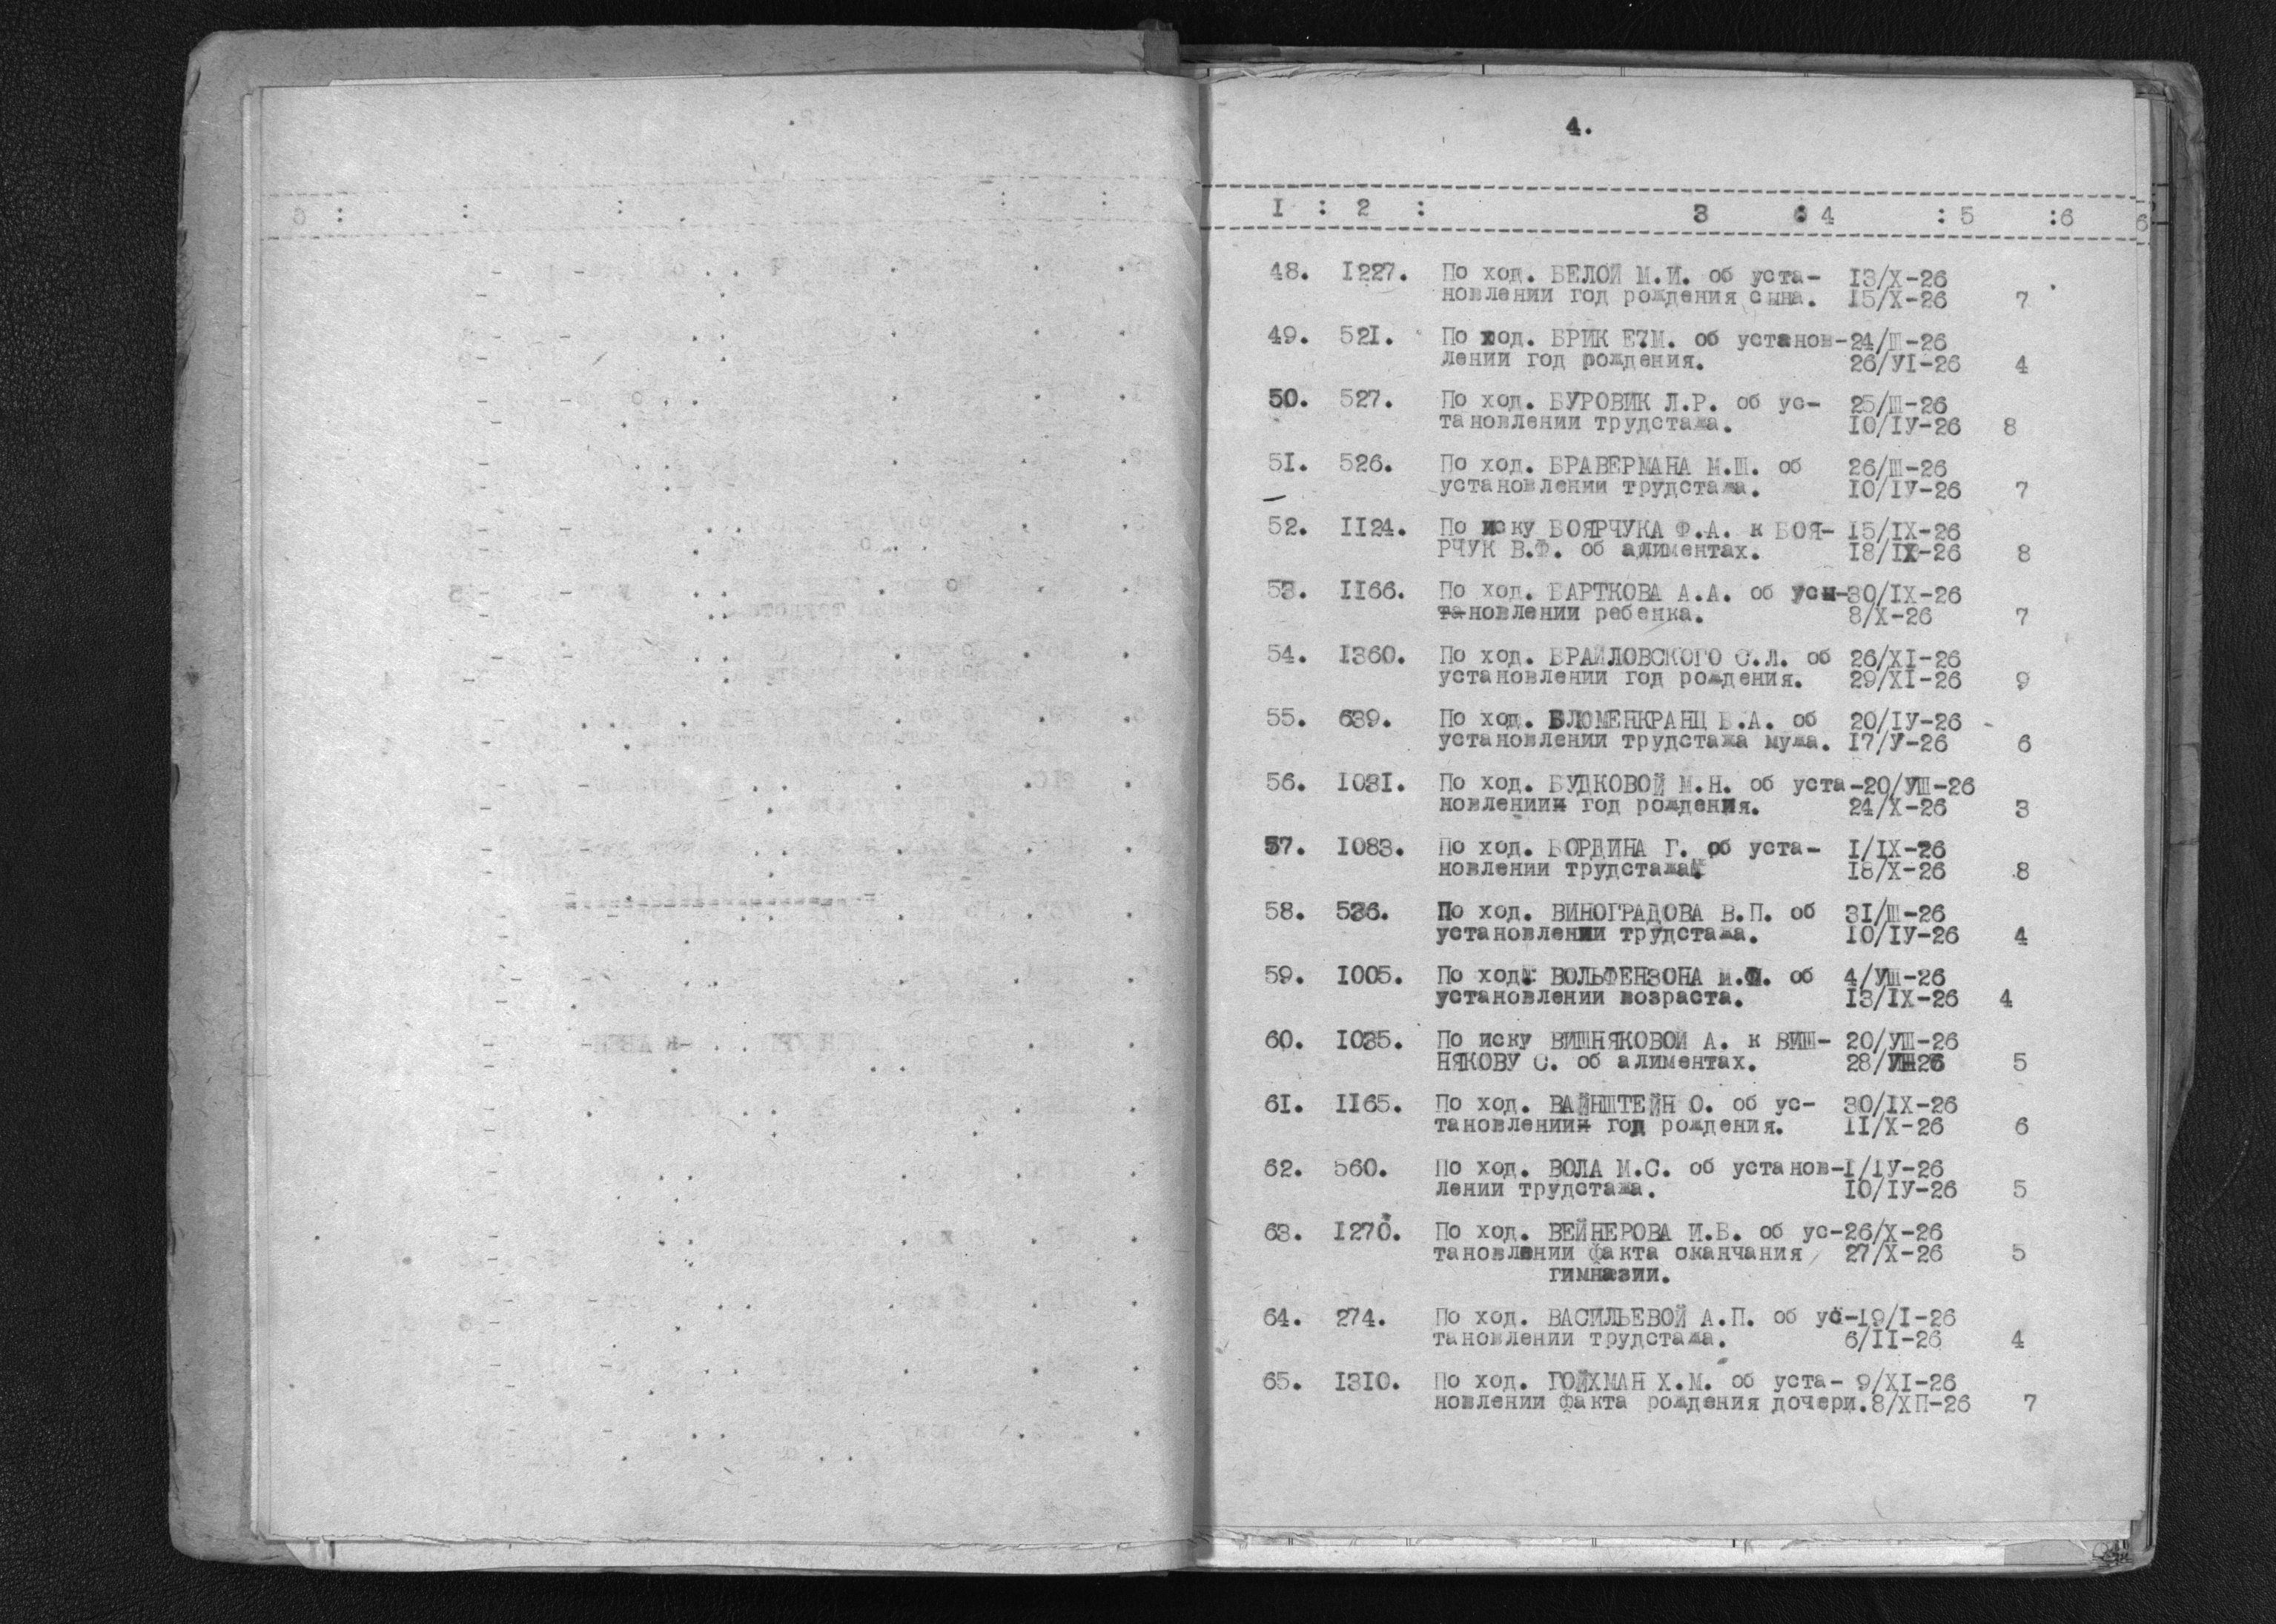 4.
I : 2 : 3 : 4 : 5 :6
48. I227. По ход. БЕЛОЙ М.И. об уста- I3/X-26
новлении год рождения сына. I5/X-26 7
49. 52I. По ход. БРИК Е7М. об установ-24/Ш-26
лении год рождения. 26/УI-26 4
50. 527. По ход. БУРОВИК Л.Р. об ус- 25/Ш-26
тановлении трудстажа. IO/IУ-26 8
5I. 526. По ход. БРАВЕРМАНА М.Ш. об 26/Ш-26
установлении трудстажа. IO/IУ-26 7
52. II24. По иску БОЯРЧУКА Ф.А. к БОЯ- I5/IX-26
РЧУК В.Ф. об алиментах. I8/IX-26 8
53. II66. По ход. БАРТКОВА А.А. об усы-30/IX-26
новлении ребенка. 8/X-26 7
54. I360. По ход. БРАЙЛОВСКОГО С.Л. об 26/XI-26
установлении год рождения. 29/XI-26 9
55. 639. По ход. БЛЮМЕНКРАНЦ Б.А. об 20/IУ-26
установлении трудстажа мужа. I7/У-26 6
56. I03I. По ход. БУДКОВОЙ М.Н. об уста-20/УШ-26
новлении год рождения. 24/X-26 3
57. I083. По ход. БОРДИНА Г. об уста- I/IX-26
новлении трудстажа. I8/X-26 8
58. 536. По ход. ВИНОГРАДОВА В.П. об 3I/Ш-26
установлении трудстажа. IO/IУ-26 4
59. I005. По ход. ВОЛЬФЕНЗОНА М.Ф. об 4/УШ-26
установлении возраста. I3/IX-26 4
60. I035. По иску ВИШНЯКОВОЙ А. к ВИШ- 20/УШ-26
НЯКОВУ С. об алиментах. 28/УШ26 5
6I. II65. По ход. ВАЙНШТЕЙН О. об ус- 30/IX-26
тановлении год рождения. II/X-26 6
62. 560. По ход. ВОЛА М.С. об установ-I/IУ-26
лении трудстажа. IO/IУ-26 5
63. I270. По ход. ВЕЙНЕРОВА И.Б. об ус-26/X-26
тановлении факта оканчания 27/X-26 5
гимназии.
64. 274. По ход. ВАСИЛЬЕВОЙ А.П. об ус-I9/I-26
тановлении трудстажа. 6/II-26 4
65. I3I0. По ход. ГОЙХМАН Х.М. об уста- 9/XI-26
новлении факта рождения дочери.8/ХП-26 7